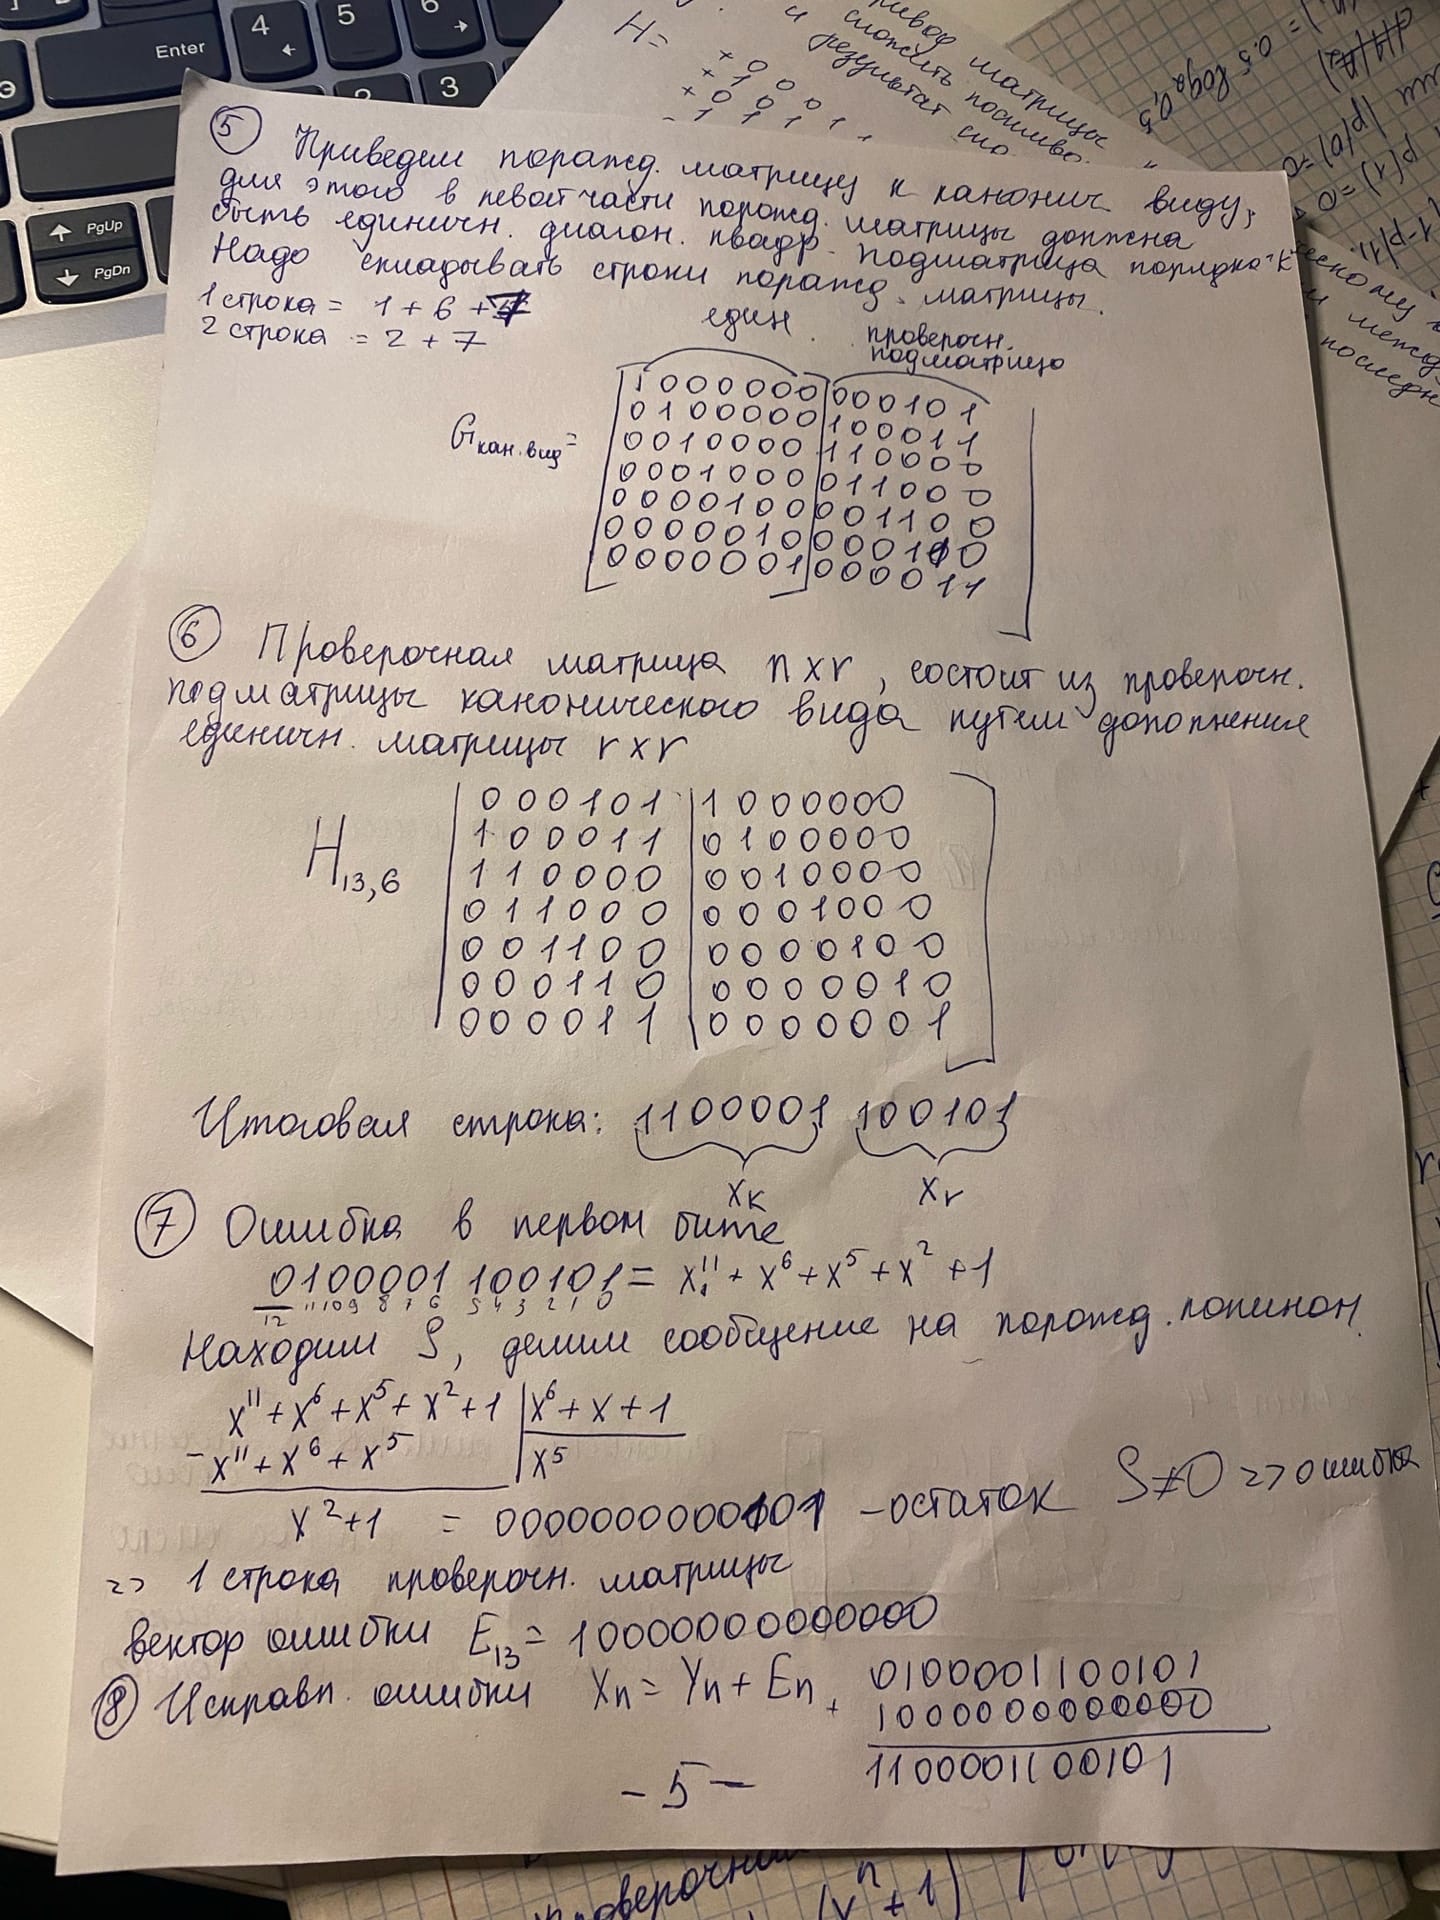 Enter
4
5
6
3
PgUp
PgDn
H=
матрицы
сложить
результат
0.5 log₂ 0,5
⑤ Приведем порожд. матрицу к канонич виду,
для этого в левой части порожд. матрицы должна
быть единичн. диагон. квадр. подматрица порядка "k"
Надо складывать строки порожд. матрицы.
1 строка = 1 + 6 + 7
2 строка = 2 + 7
един. проверочн.
подматрица
Gкан.вид =
1000000 000101
0100000 100011
0010000 110000
0001000 011000
0000100 001100
0000010 000110
0000001 000011
⑥ Проверочная матрица n x r, состоит из проверочн.
подматрицы канонического вида путем дополнения
единичн. матрицы r x r
H13,6
000101 1000000
100011 0100000
110000 0010000
011000 0001000
001100 0000100
000110 0000010
000011 0000001
Итоговая строка: 1100001 100101
xk xr
⑦ Ошибка в первом бите
0100001 100101 = x¹¹ + x⁶ + x⁵ + x² + 1
12 11 10 9 8 7 6 5 4 3 2 1 0
Находим S, делим сообщение на порожд. полином.
x¹¹ + x⁶ + x⁵ + x² + 1 | x⁶ + x + 1
- x¹¹ + x⁶ + x⁵ | x⁵
x² + 1 = 0000000000101 - остаток S≠0 => ошибка
=> 1 строка проверочн. матрицы
вектор ошибки E13 = 1000000000000
⑧ Исправл. ошибки Xn = Yn + En + 0100001100101
1000000000000
1100001100101
- 5 -
проверочн
(xⁿ+1)